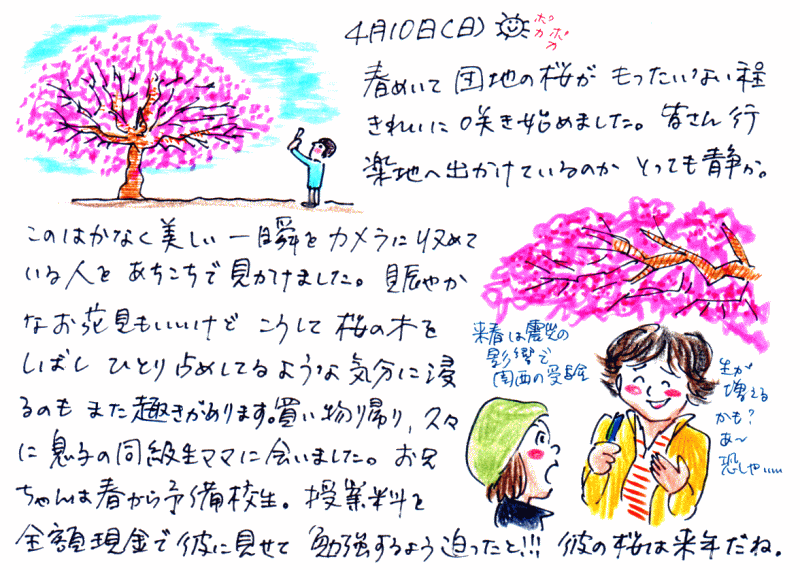 4月10日(日)
ポカ
ポカ
春めいて 団地の桜が もったいない程
きれいに咲き始めました。皆さん行
楽地へ出かけているのか とっても静か。
このはかなく美しい一瞬を カメラに収めて
いる人を あちこちで見かけました。賑やか
なお花見もいいけど こうして 桜の木を
しばし ひとり占めしてるような気分に浸
るのも また趣きがあります。買い物帰り、久々
に息子の同級生ママに会いました。お兄
ちゃんは春から予備校生。授業料を
全額現金で彼に見せて 勉強するよう迫ったと!!! 彼の桜は来年だね。
来春は震災の
影響で
関西の受験
生が
増える
かも?
あ~
恐しや……